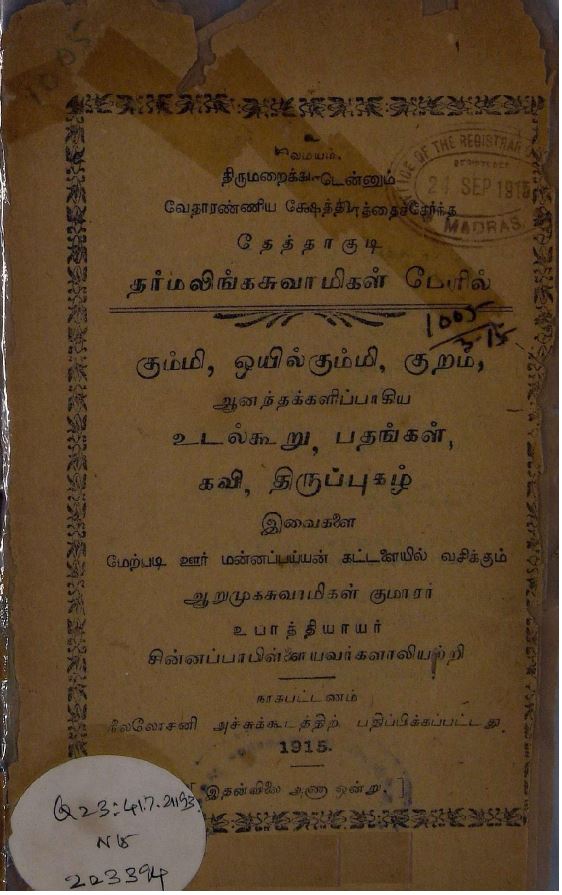 1005
OFFICE OF THE REGISTRAR
REGISTERED
24 SEP 1915
MADRAS
திருமறைக்காடென்னும்
வேதாரண்ணிய க்ஷேத்திரத்தைச்சேர்ந்த
தேத்தாகுடி
தர்மலிங்கசுவாமிகள் பேரில்
1005
3-15
கும்மி, ஒயில்கும்மி, குறம்,
ஆனந்தக்களிப்பாகிய
உடல்கூறு, பதங்கள்,
கவி, திருப்புகழ்
இவைகளை
மேற்படி ஊர் மன்னப்பய்யன் கட்டளையில் வசிக்கும்
ஆறுமுகசுவாமிகள் குமாரர்
உபாத்தியாயர்
சின்னப்பாபிள்ளையவர்களாலியற்றி
நாகபட்டணம்
நீலலோசனி அச்சுக்கூடத்திற் பதிப்பிக்கப்பட்டது
1915.
[ இதன்விலை அணா ஒன்று. ]
Q23:417.21193
N15
203394